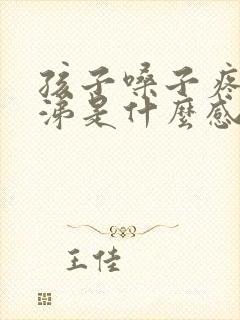 孩子嗓子疼
涕是什麼感
王佳